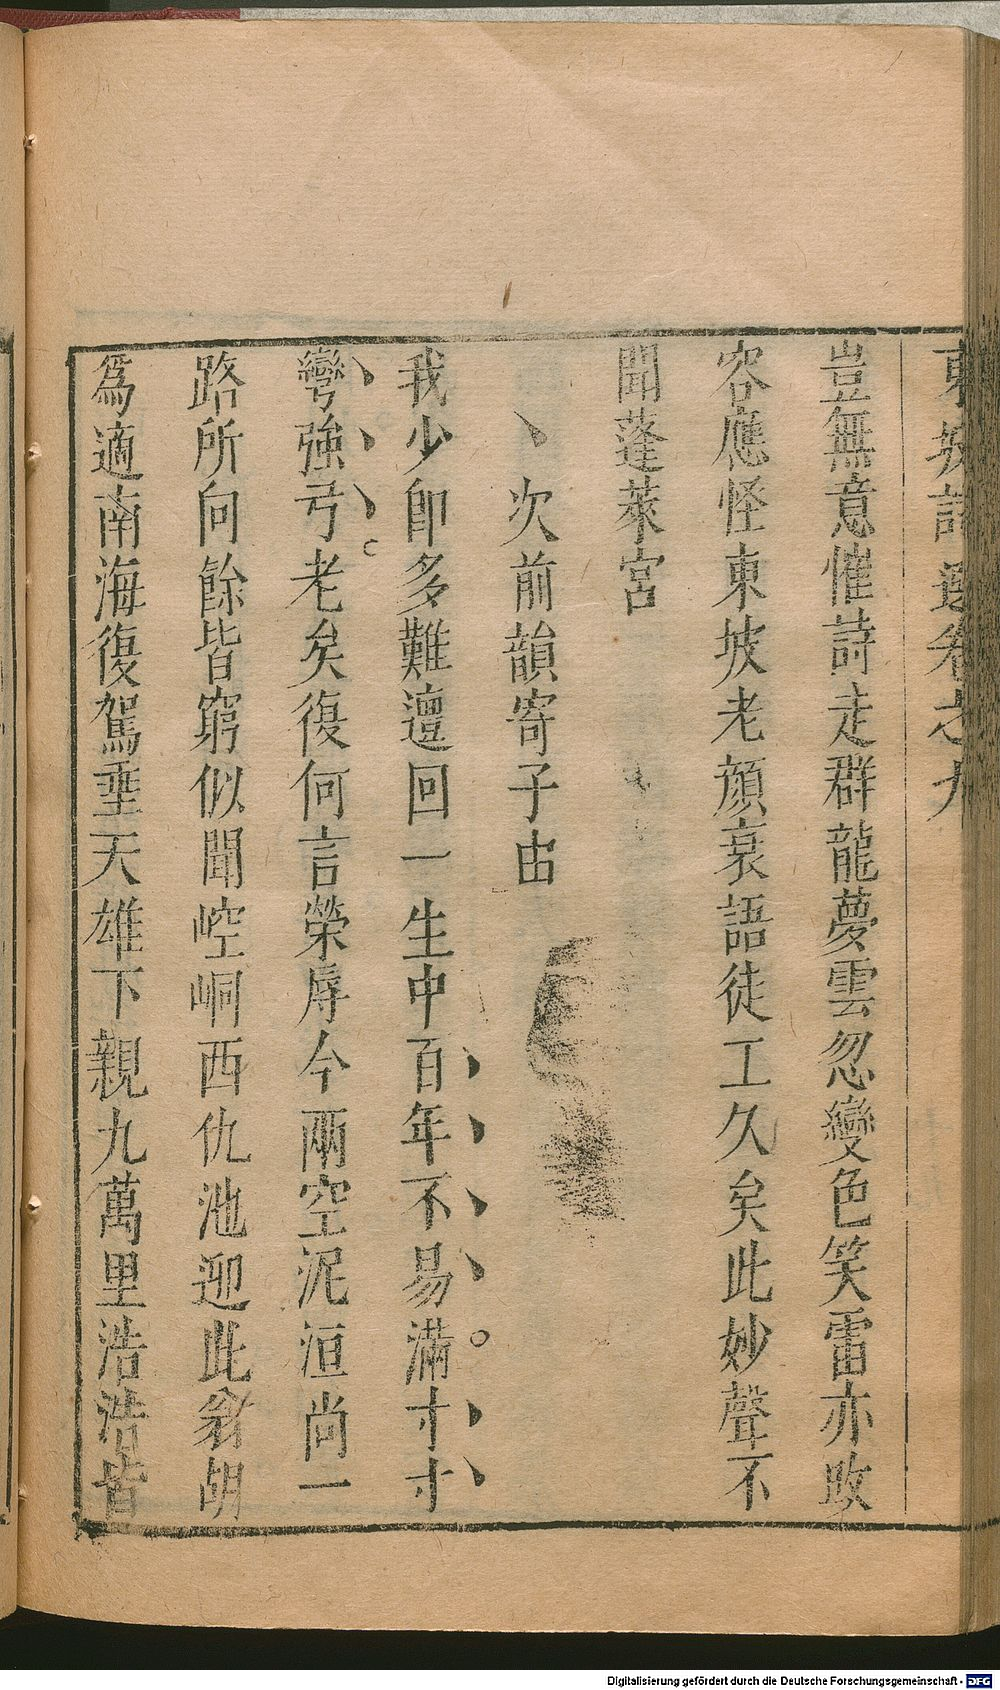 東坡詩選卷之九
豈無意催詩走群龍夢雲忽變色笑雷亦改
容應怪東坡老顔衰語徒工久矣此妙聲不
聞蓬萊宮
次前韻寄子由
我少卽多難邅回一生中百年不易滿寸寸
彎強弓老矣復何言榮辱今兩空泥洹尚一
路所向餘皆窮似聞崆峒西仇池迎此翁胡
爲適南海復駕垂天雄下親九萬里浩浩皆
Digitalisierung gefördert durch die Deutsche Forschungsgemeinschaft - DFG